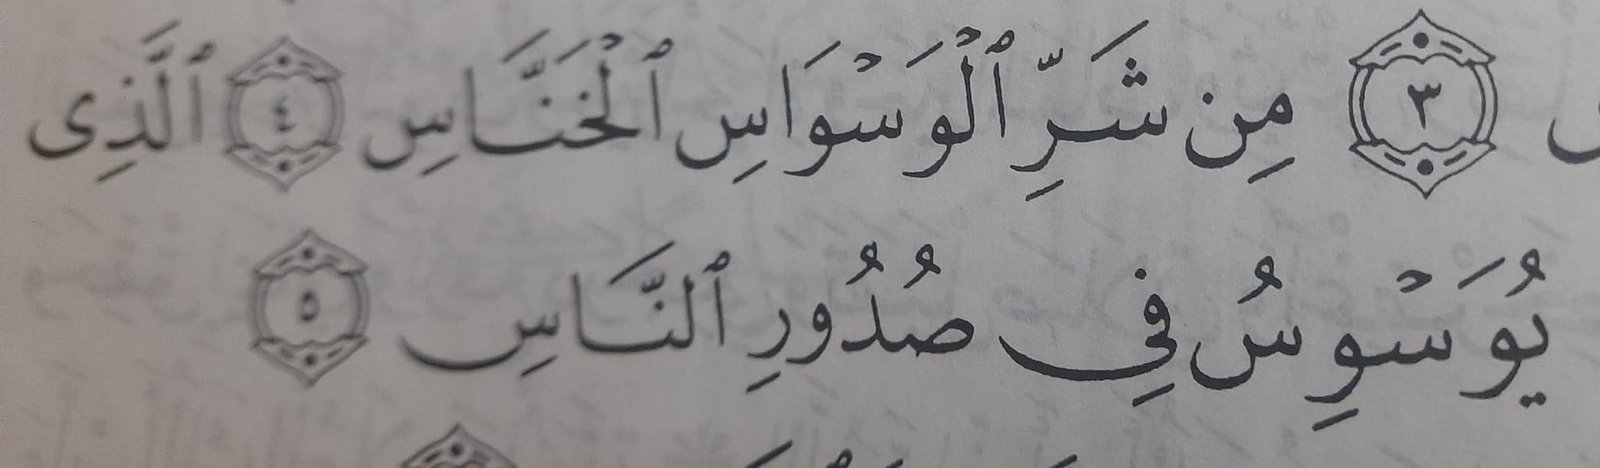 ٣ مِن شَرِّ ٱلْوَسْوَاسِ ٱلْخَنَّاسِ ٤ ٱلَّذِى
يُوَسْوِسُ فِى صُدُورِ ٱلنَّاسِ ٥